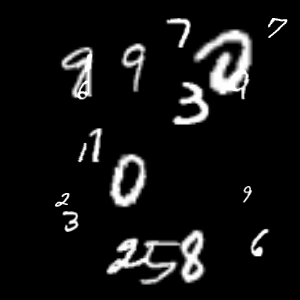 7 7
9 9 0
6 3 9
1 1
0
2 9
3
6
2 5 8